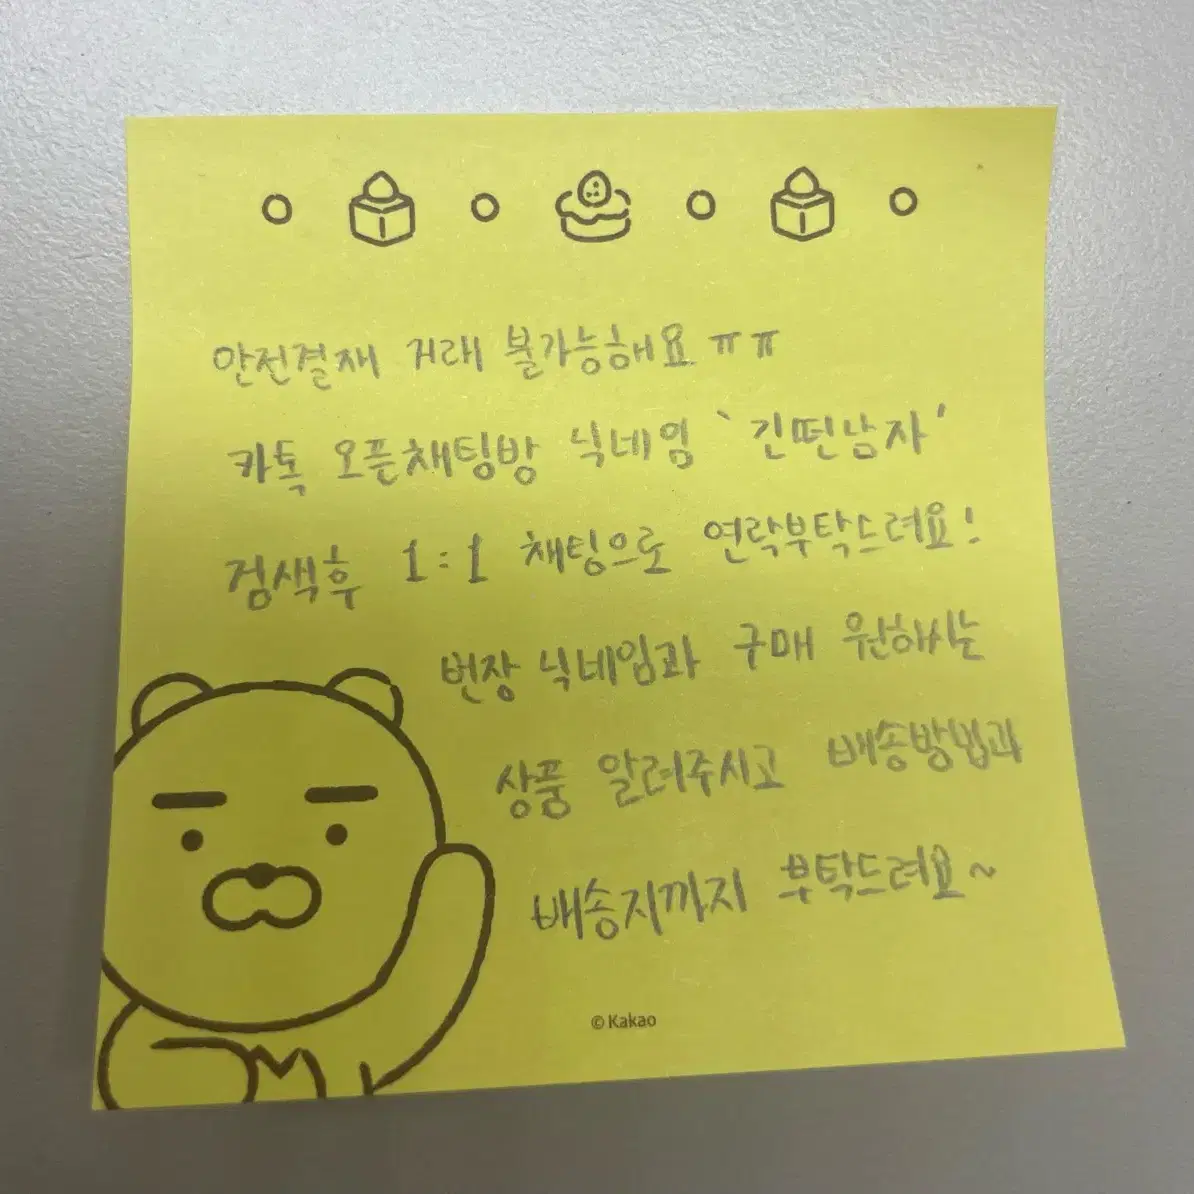 안전결재 거래 불가능해요 ㅠㅠ
카톡 오픈채팅방 닉네임 '긴떤남자'
검색후 1:1 채팅으로 연락부탁드려요!
번장 닉네임과 구매 원하시는
상품 알려주시고 배송방법과
배송지까지 부탁드려요~
© Kakao